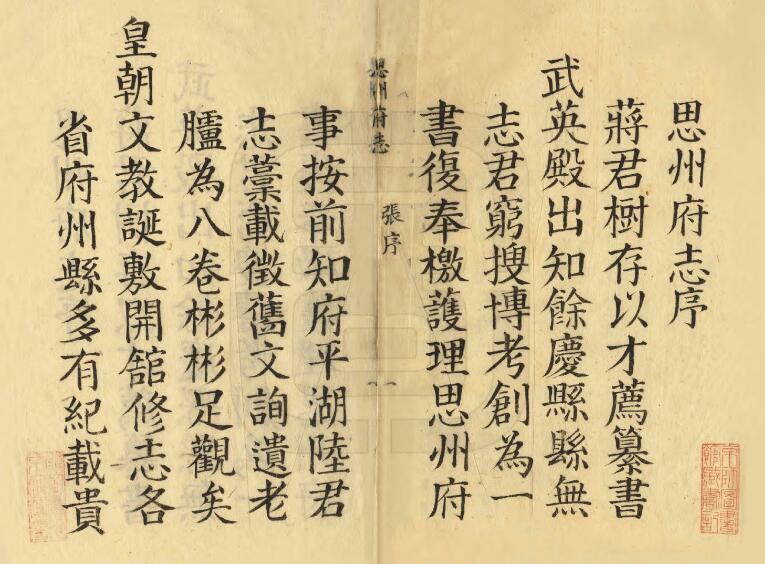 思州府志序
蔣君樹存以才薦纂書
武英殿出知餘慶縣縣無
志君窮搜博考創為一
書復奉檄護理思州府
思州府志
張序
事按前知府平湖陸君
志藁載徵舊文詢遺老
臚為八卷彬彬足觀矣
皇朝文教誕敷開舘修志各
省府州縣多有紀載貴